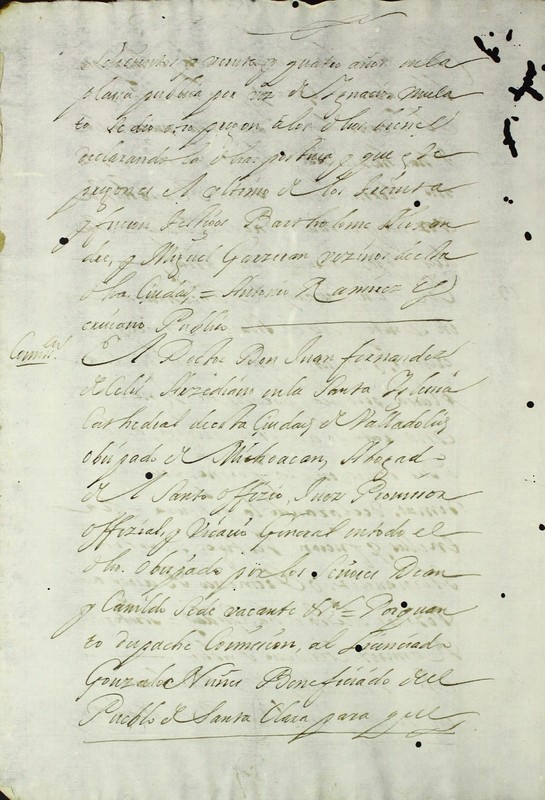 y veinte y quatro años en la
plaza publica por voz de Ygnacio mula
to se dio otro pregon a los dhos vienes
declarando la dha postura y que Se
pregones el ultimo de los treinta
y fueron testigos Bartholome
y Miguel vezinos desta
dha Ciudad = Antonio Ramirez Es
crivano Publico
Comisn.
El Doctor Don Juan fernandez
de Celis en la Santa Yglesia
Cathedral desta Ciudad de Valladolid
obispado de Michoacan, Abogado
de el Santo Offizio, Juez Provisor
offizial, y Vicario General en todo el
dho Obispado por los Señores Dean
y Cavildo Sede vacante &a = Por quan
to despache Comission, al Lizenciado
Gonzalo Nuñes Beneficiado del
Pueblo de Santa Clara para que